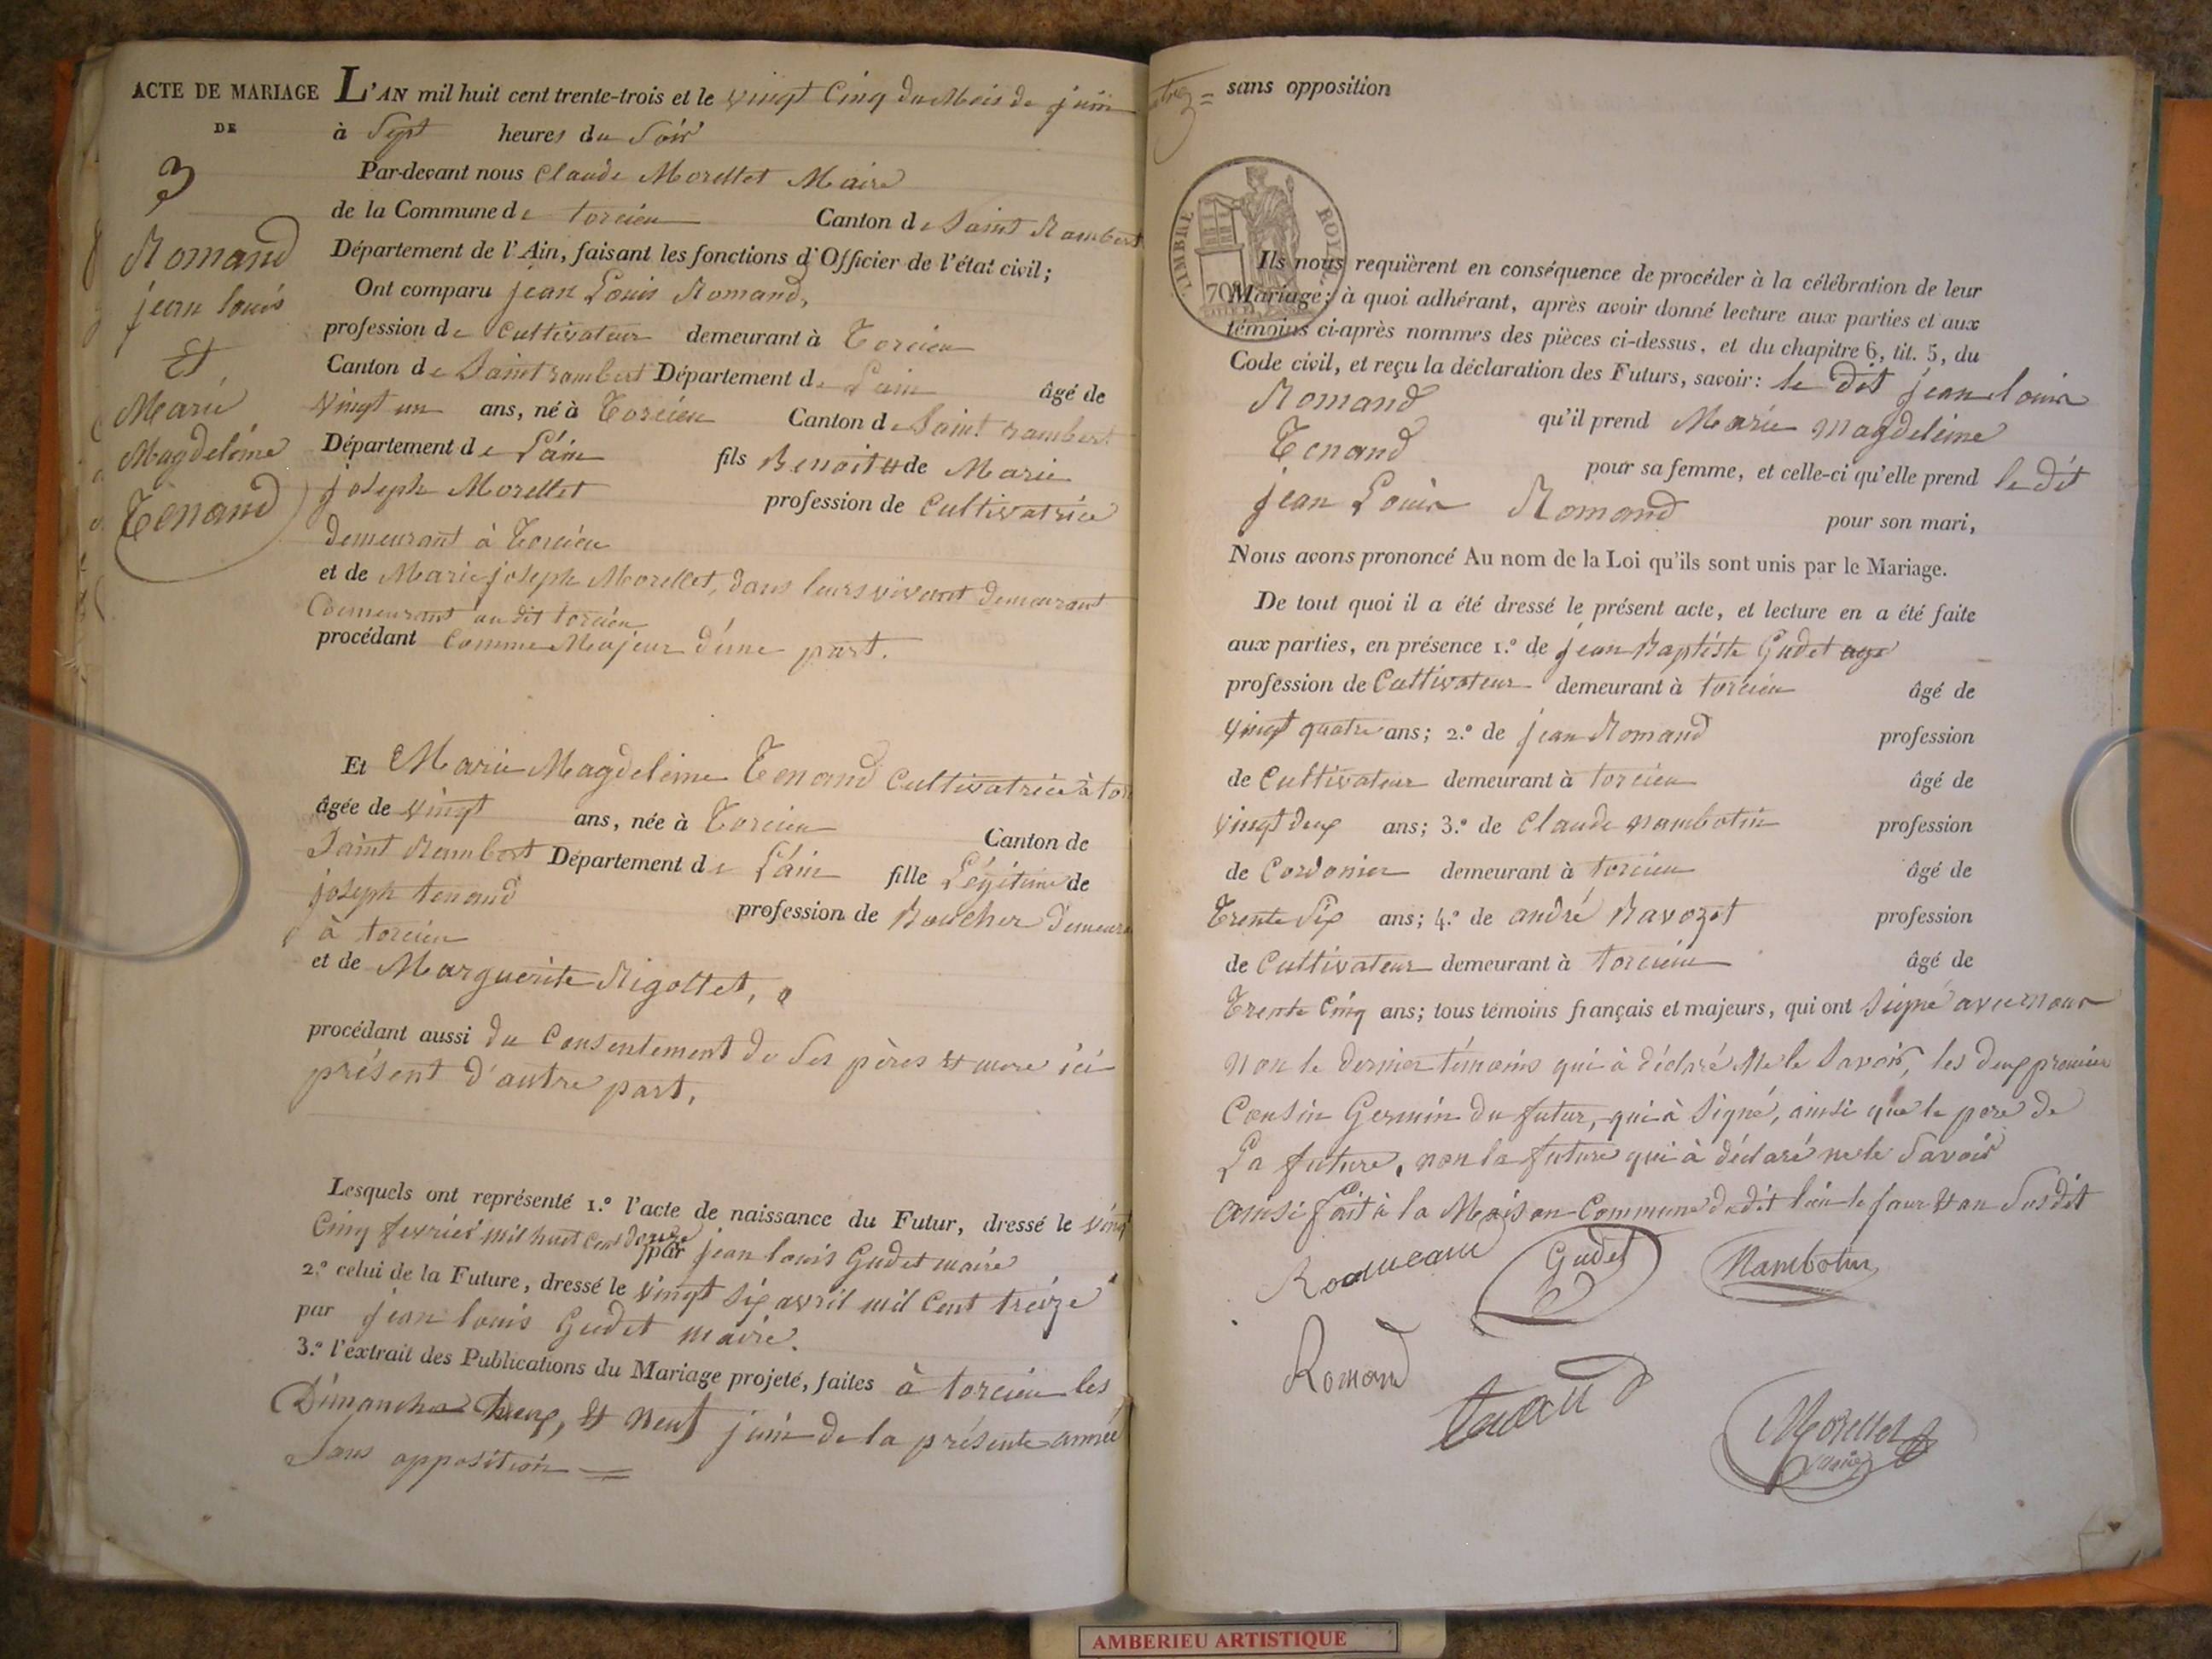 ACTE DE MARIAGE
DE
3
Romand
jean louis
Et
Marie
Magdeleine
Tenand
L'AN mil huit cent trente-trois et le vingt Cinq du Mois de juin
à Sept heures du Soir
Par-devant nous Claude Morellet Maire
de la Commune de torcieu Canton de Saint Rambert
Département de l'Ain, faisant les fonctions d'Officier de l'état civil;
Ont comparu jean Louis Romand,
profession de Cultivateur demeurant à Torcieu
Canton de Saint rambert Département de Lain âgé de
vingt un ans, né à Torcieu Canton de Saint rambert
Département de L'ain fils Benoit et de Marie
joseph Morellet profession de Cultivatrice
demeurant à Torcieu
et de Marie joseph Morellet, dans leurs vivant demeurant
au dit torcieu
procédant Comme Majeur d'une part.
Et Marie Magdeleine Tenand Cultivatrice à tor
âgée de vingt ans, née à Torcieu Canton de
Saint Rambert Département de L'ain fille Légitime de
joseph tenand profession de Boucher demeura
à torcieu
et de Marguerite Rigollet,
procédant aussi du Consentement de Ses pères et mere ici
présent d'autre part.
Lesquels ont représenté 1.º l'acte de naissance du Futur, dressé le vingt
Cinq fevrier mil huit Cent douze par jean louis Gudet maire
2.º celui de la Future, dressé le vingt Six avril mil Cent treize
par jean louis Gudet maire.
3.º l'extrait des Publications du Mariage projeté, faites à torcieu les
Dimanche deux, et neuf juin de la présente année
Sans opposition =
sans opposition
TIMBRE ROYAL
70
Ils nous requièrent en conséquence de procéder à la célébration de leur
Mariage; à quoi adhérant, après avoir donné lecture aux parties et aux
témoins ci-après nommes des pièces ci-dessus, et du chapitre 6, tit. 5, du
Code civil, et reçu la déclaration des Futurs, savoir: le dit jean louis
Romand qu'il prend Marie Magdeleine
Tenand pour sa femme, et celle-ci qu'elle prend le dit
jean Louis Romand pour son mari,
Nous avons prononcé Au nom de la Loi qu'ils sont unis par le Mariage.
De tout quoi il a été dressé le présent acte, et lecture en a été faite
aux parties, en présence 1.º de jean Baptiste Gudet age
profession de Cultivateur demeurant à torcieu âgé de
vingt quatre ans; 2.º de jean Romand profession
de Cultivateur demeurant à torcieu âgé de
vingt deux ans; 3.º de Claude nambotin profession
de Cordonier demeurant à torcieu âgé de
Trente Six ans; 4.º de andré Ravozet profession
de Cultivateur demeurant à torcieu âgé de
Trente Cinq ans; tous témoins français et majeurs, qui ont Signé avec nous
non le dernier témoins qui à déclaré Ne le Savoir, les deux premier
Cousin Germin du futur, qui à Signé, ainsi que le pere de
La future, non la future qui à déclaré ne le Savoir
ainsi fait à la Maison Commune dudit lieu le jour et an Susdit
Gudet
Nambotin
Romand
tenand
Morellet
maire
AMBERIEU ARTISTIQUE